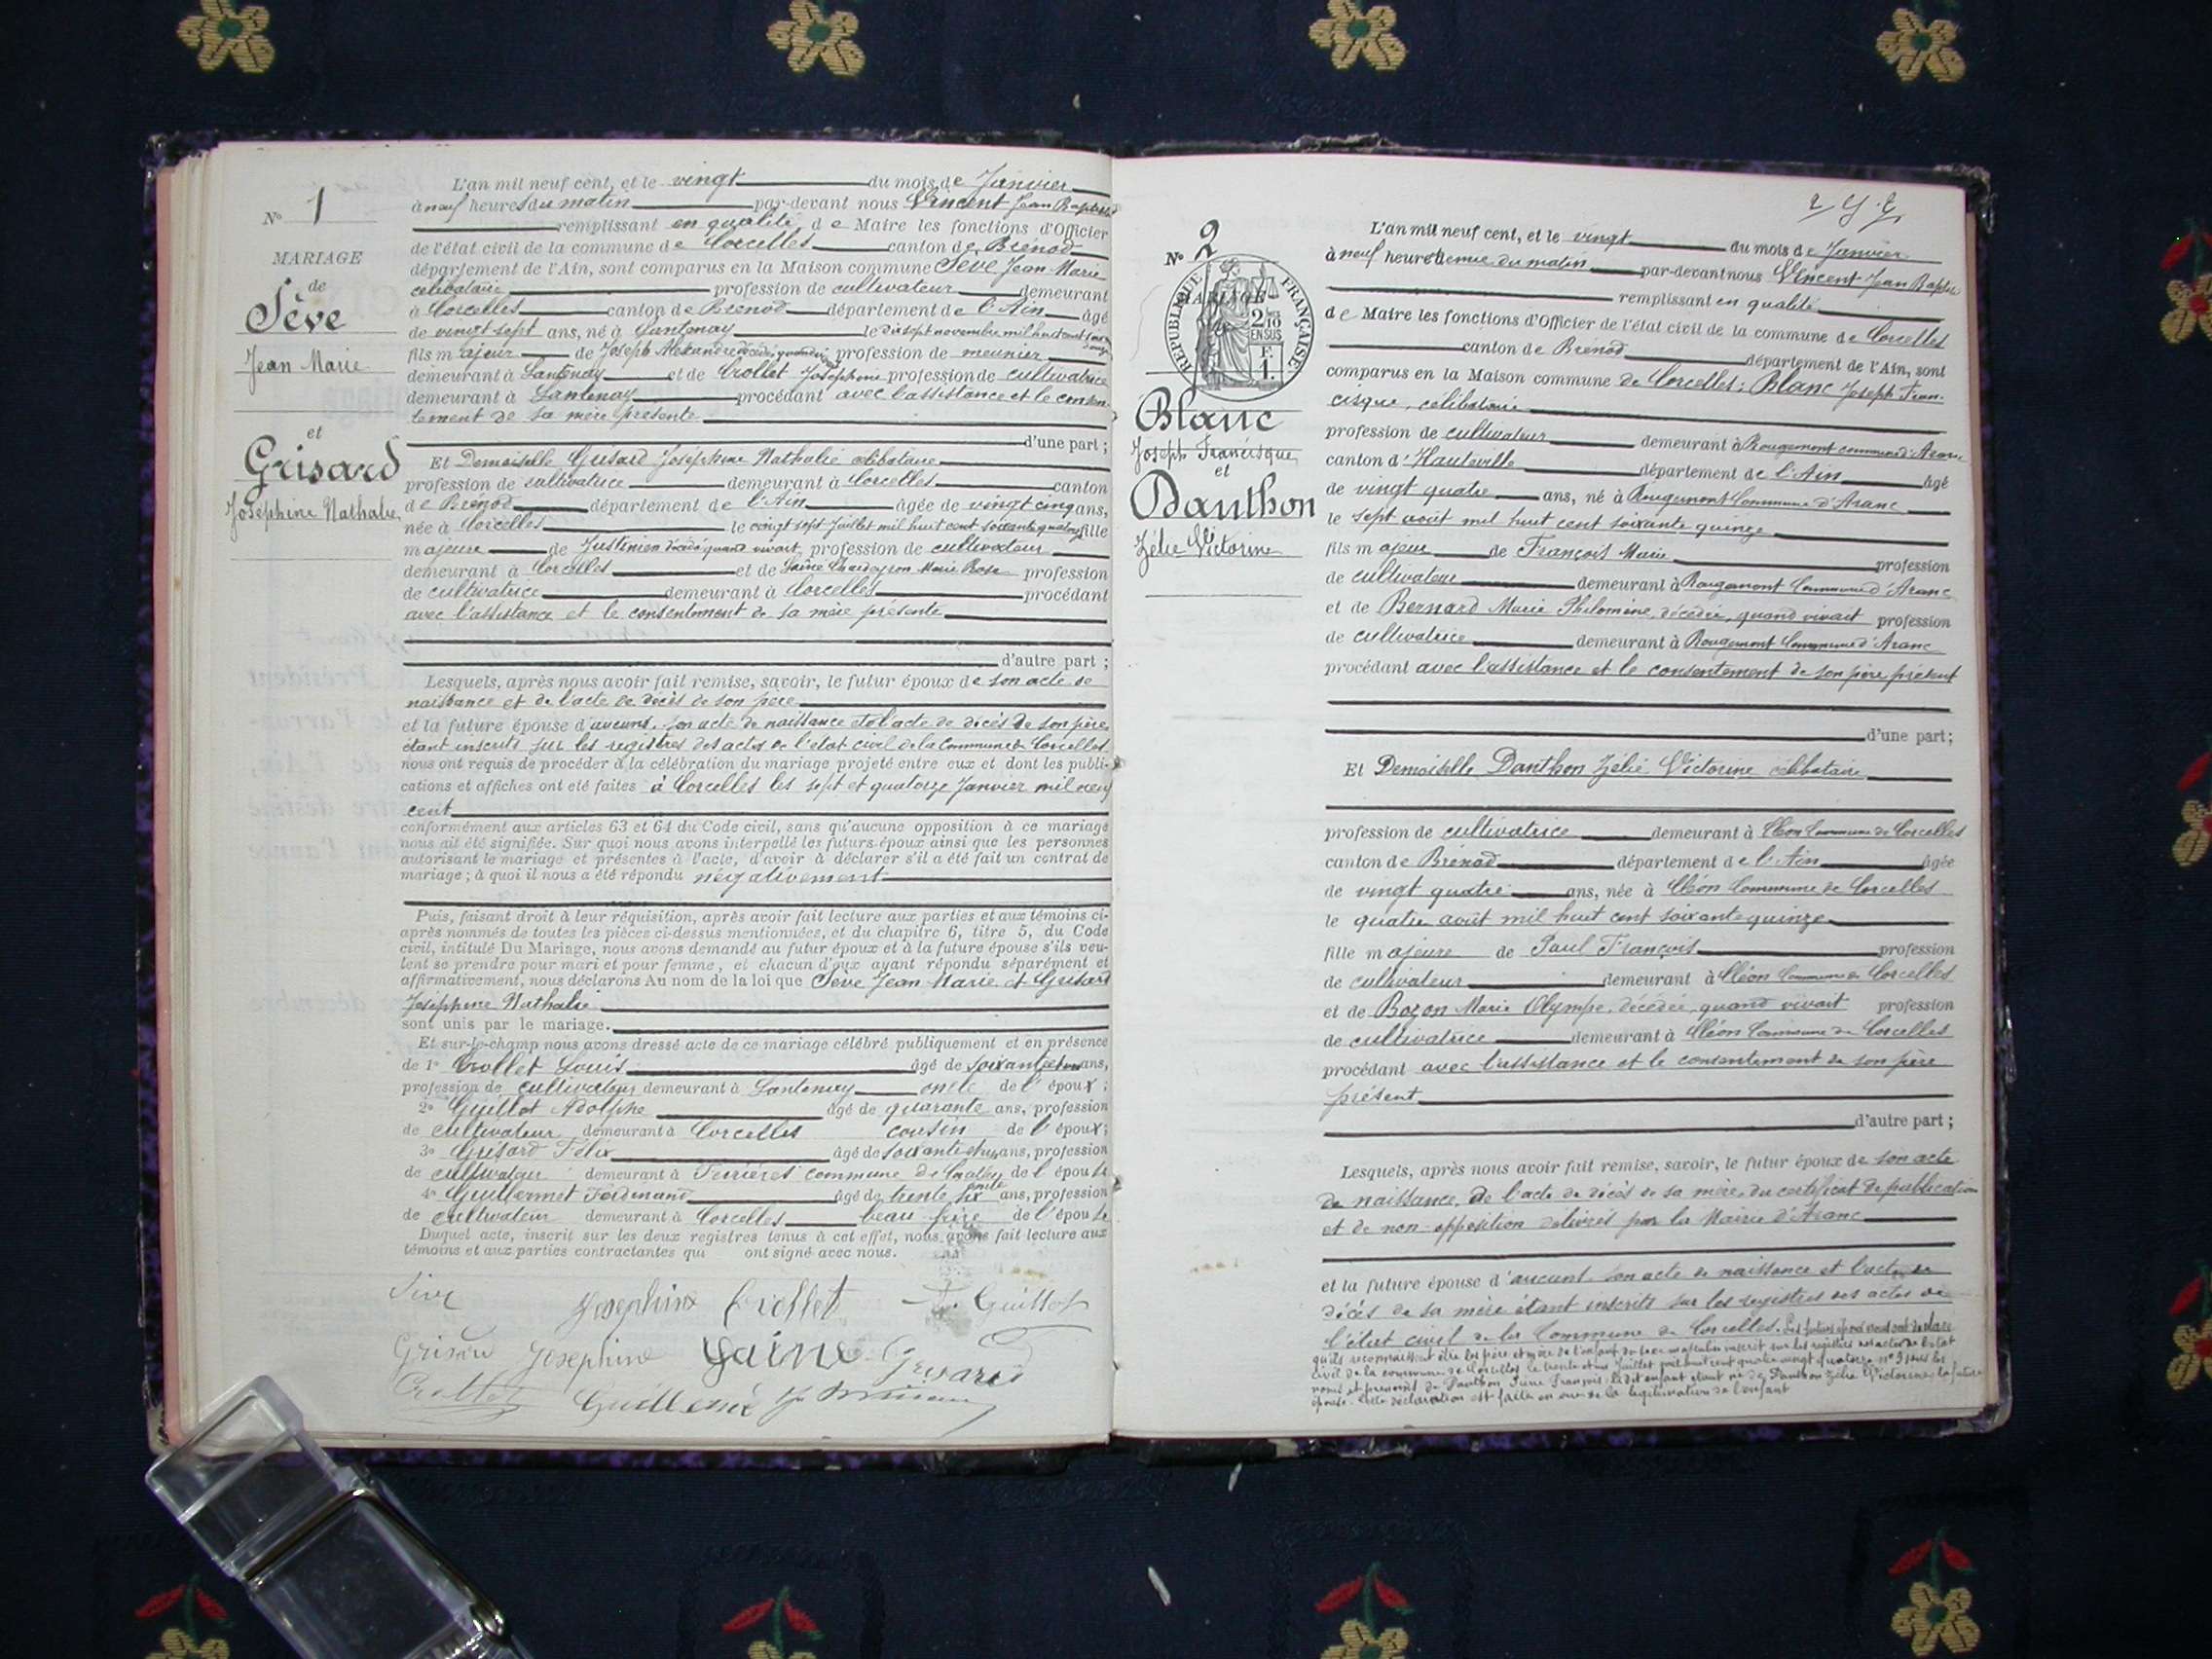 N° 1
MARIAGE
de
Sève
Jean Marie
et
Grisard
Joséphine Nathalie
L'an mil neuf cent, et le vingt du mois de Janvier
à neuf heures du matin par-devant nous Vincent Jean Baptiste
remplissant en qualité de Maire les fonctions d'Officier
de l'état civil de la commune de Corcelles canton de Brénod
département de l'Ain, sont comparus en la Maison commune Sève Jean Marie
célibataire profession de cultivateur demeurant
à Corcelles canton de Brénod département de l'Ain âgé
de vingt sept ans, né à Lantenay le dix sept novembre mil huit cent
fils majeur de Joseph Alexandre décédé quand vivait profession de meunier
demeurant à Lantenay et de Crollet Joséphine profession de cultivatrice
demeurant à Lantenay procédant avec l'assistance et le consen-
tement de sa mère présente
d'une part ;
Et Demoiselle Grisard Joséphine Nathalie célibataire
profession de cultivatrice demeurant à Corcelles canton
de Brénod département de l'Ain âgée de vingt cinq ans,
née à Corcelles le vingt sept Juillet mil huit cent soixante quatorze fille
majeure de Justinien décédé quand vivait, profession de cultivateur
demeurant à Corcelles et de Marie Rose profession
de cultivatrice demeurant à Corcelles procédant
avec l'assistance et le consentement de sa mère présente
d'autre part ;
Lesquels, après nous avoir fait remise, savoir, le futur époux de son acte de
naissance et de l'acte de décès de son père
et la future épouse d'aucuns, son acte de naissance et l'acte de décès de son père
étant inscrits sur les registres des actes de l'état civil de la Commune de Corcelles
nous ont requis de procéder à la célébration du mariage projeté entre eux et dont les publi-
cations et affiches ont été faites à Corcelles les sept et quatorze Janvier mil neuf
cent
conformément aux articles 63 et 64 du Code civil, sans qu'aucune opposition à ce mariage
nous ait été signifiée. Sur quoi nous avons interpellé les futurs époux ainsi que les personnes
autorisant le mariage et présentes à l'acte, d'avoir à déclarer s'il a été fait un contrat de
mariage ; à quoi il nous a été répondu négativement
Puis, faisant droit à leur réquisition, après avoir fait lecture aux parties et aux témoins ci-
après nommés de toutes les pièces ci-dessus mentionnées, et du chapitre 6, titre 5, du Code
civil, intitulé Du Mariage, nous avons demandé au futur époux et à la future épouse s'ils veu-
lent se prendre pour mari et pour femme, et chacun d'eux ayant répondu séparément et
affirmativement, nous déclarons Au nom de la loi que Sève Jean Marie et Grisard
Joséphine Nathalie
sont unis par le mariage.
Et sur-le-champ nous avons dressé acte de ce mariage célébré publiquement et en présence
de 1° Crollet Louis âgé de ans,
profession de cultivateur demeurant à Lantenay oncle de l'époux ;
2° Guillot Adolphe âgé de quarante ans, profession
de cultivateur demeurant à Corcelles cousin de l'époux ;
3° Grisard Félix âgé de ans, profession
de cultivateur demeurant à Ferrières commune de de l'épouse
4° Guillermet Ferdinand âgé de trente six ans, profession
de cultivateur demeurant à Corcelles beau frère de l'épouse
Duquel acte, inscrit sur les deux registres tenus à cet effet, nous avons fait lecture aux
témoins et aux parties contractantes qui ont signé avec nous.
Sève Joséphine Crollet A. Guillot
Grisard Joséphine Grisard
Crollet
N° 2
MARIAGE
REPUBLIQUE FRANÇAISE
2/10 EN SUS
F. 1.
Blanc
Joseph Francisque
et
Danthon
Zélie Victorine
L'an mil neuf cent, et le vingt du mois de Janvier
à neuf heures demie du matin par-devant nous Vincent Jean Baptiste
remplissant en qualité
de Maire les fonctions d'Officier de l'état civil de la commune de Corcelles
canton de Brénod département de l'Ain, sont
comparus en la Maison commune de Corcelles ; Blanc Joseph Fran-
cisque, célibataire
profession de cultivateur demeurant à Rougemont commune d'Aranc
canton d'Hauteville département de l'Ain âgé
de vingt quatre ans, né à Rougemont Commune d'Aranc
le sept août mil huit cent soixante quinze
fils majeur de François Marie profession
de cultivateur demeurant à Rougemont Commune d'Aranc
et de Bernard Marie Philomène, décédée, quand vivait profession
de cultivatrice demeurant à Rougemont Commune d'Aranc
procédant avec l'assistance et le consentement de son père présent
d'une part ;
Et Demoiselle Danthon Zélie Victorine célibataire
profession de cultivatrice demeurant à Cléon Commune de Corcelles
canton de Brénod département de l'Ain âgée
de vingt quatre ans, née à Cléon Commune de Corcelles
le quatre août mil huit cent soixante quinze
fille majeure de Paul François profession
de cultivateur demeurant à Cléon Commune de Corcelles
et de Bozon Marie Olympe, décédée, quand vivait profession
de cultivatrice demeurant à Cléon Commune de Corcelles
procédant avec l'assistance et le consentement de son père
présent
d'autre part ;
Lesquels, après nous avoir fait remise, savoir, le futur époux de son acte
de naissance, de l'acte de décès de sa mère, du certificat de publication
et de non-opposition délivrés par la Mairie d'Aranc
et la future épouse d'aucunt. son acte de naissance et l'acte de
décès de sa mère étant inscrits sur les registres des actes de
l'état civil de la Commune de Corcelles. Les futurs époux nous ont déclaré
qu'ils reconnaissent être les père et mère de l'enfant du sexe masculin inscrit sur les registres des actes de l'état
civil de la commune de Corcelles le trente et un Juillet mil huit cent quatre vingt quatorze n° 9 sous les
noms et prénoms de Danthon François ledit enfant étant né de Danthon Zélie Victorine la future
épouse. Cette déclaration est faite en vue de la légitimation de l'enfant